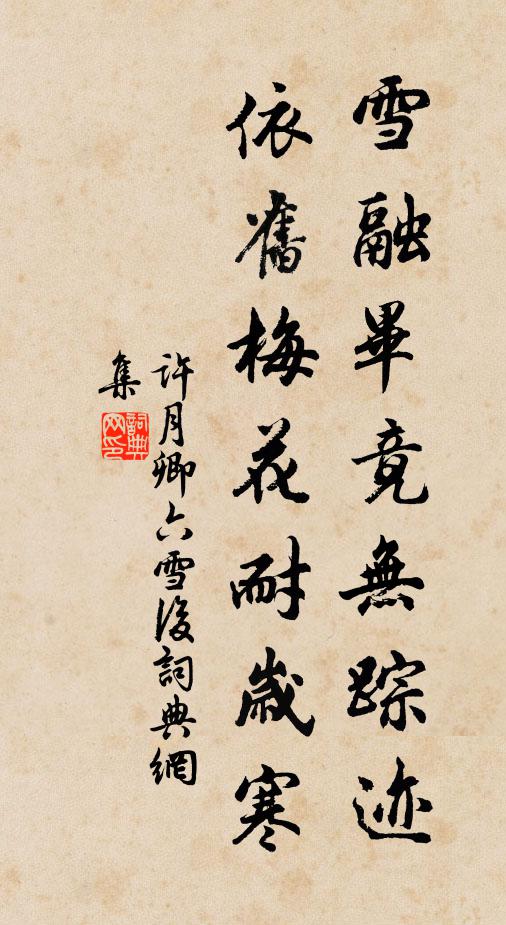 雪融畢竟無踪迹
依舊梅花耐歲寒
許月卿六雪後詞典網
集
詞典网印